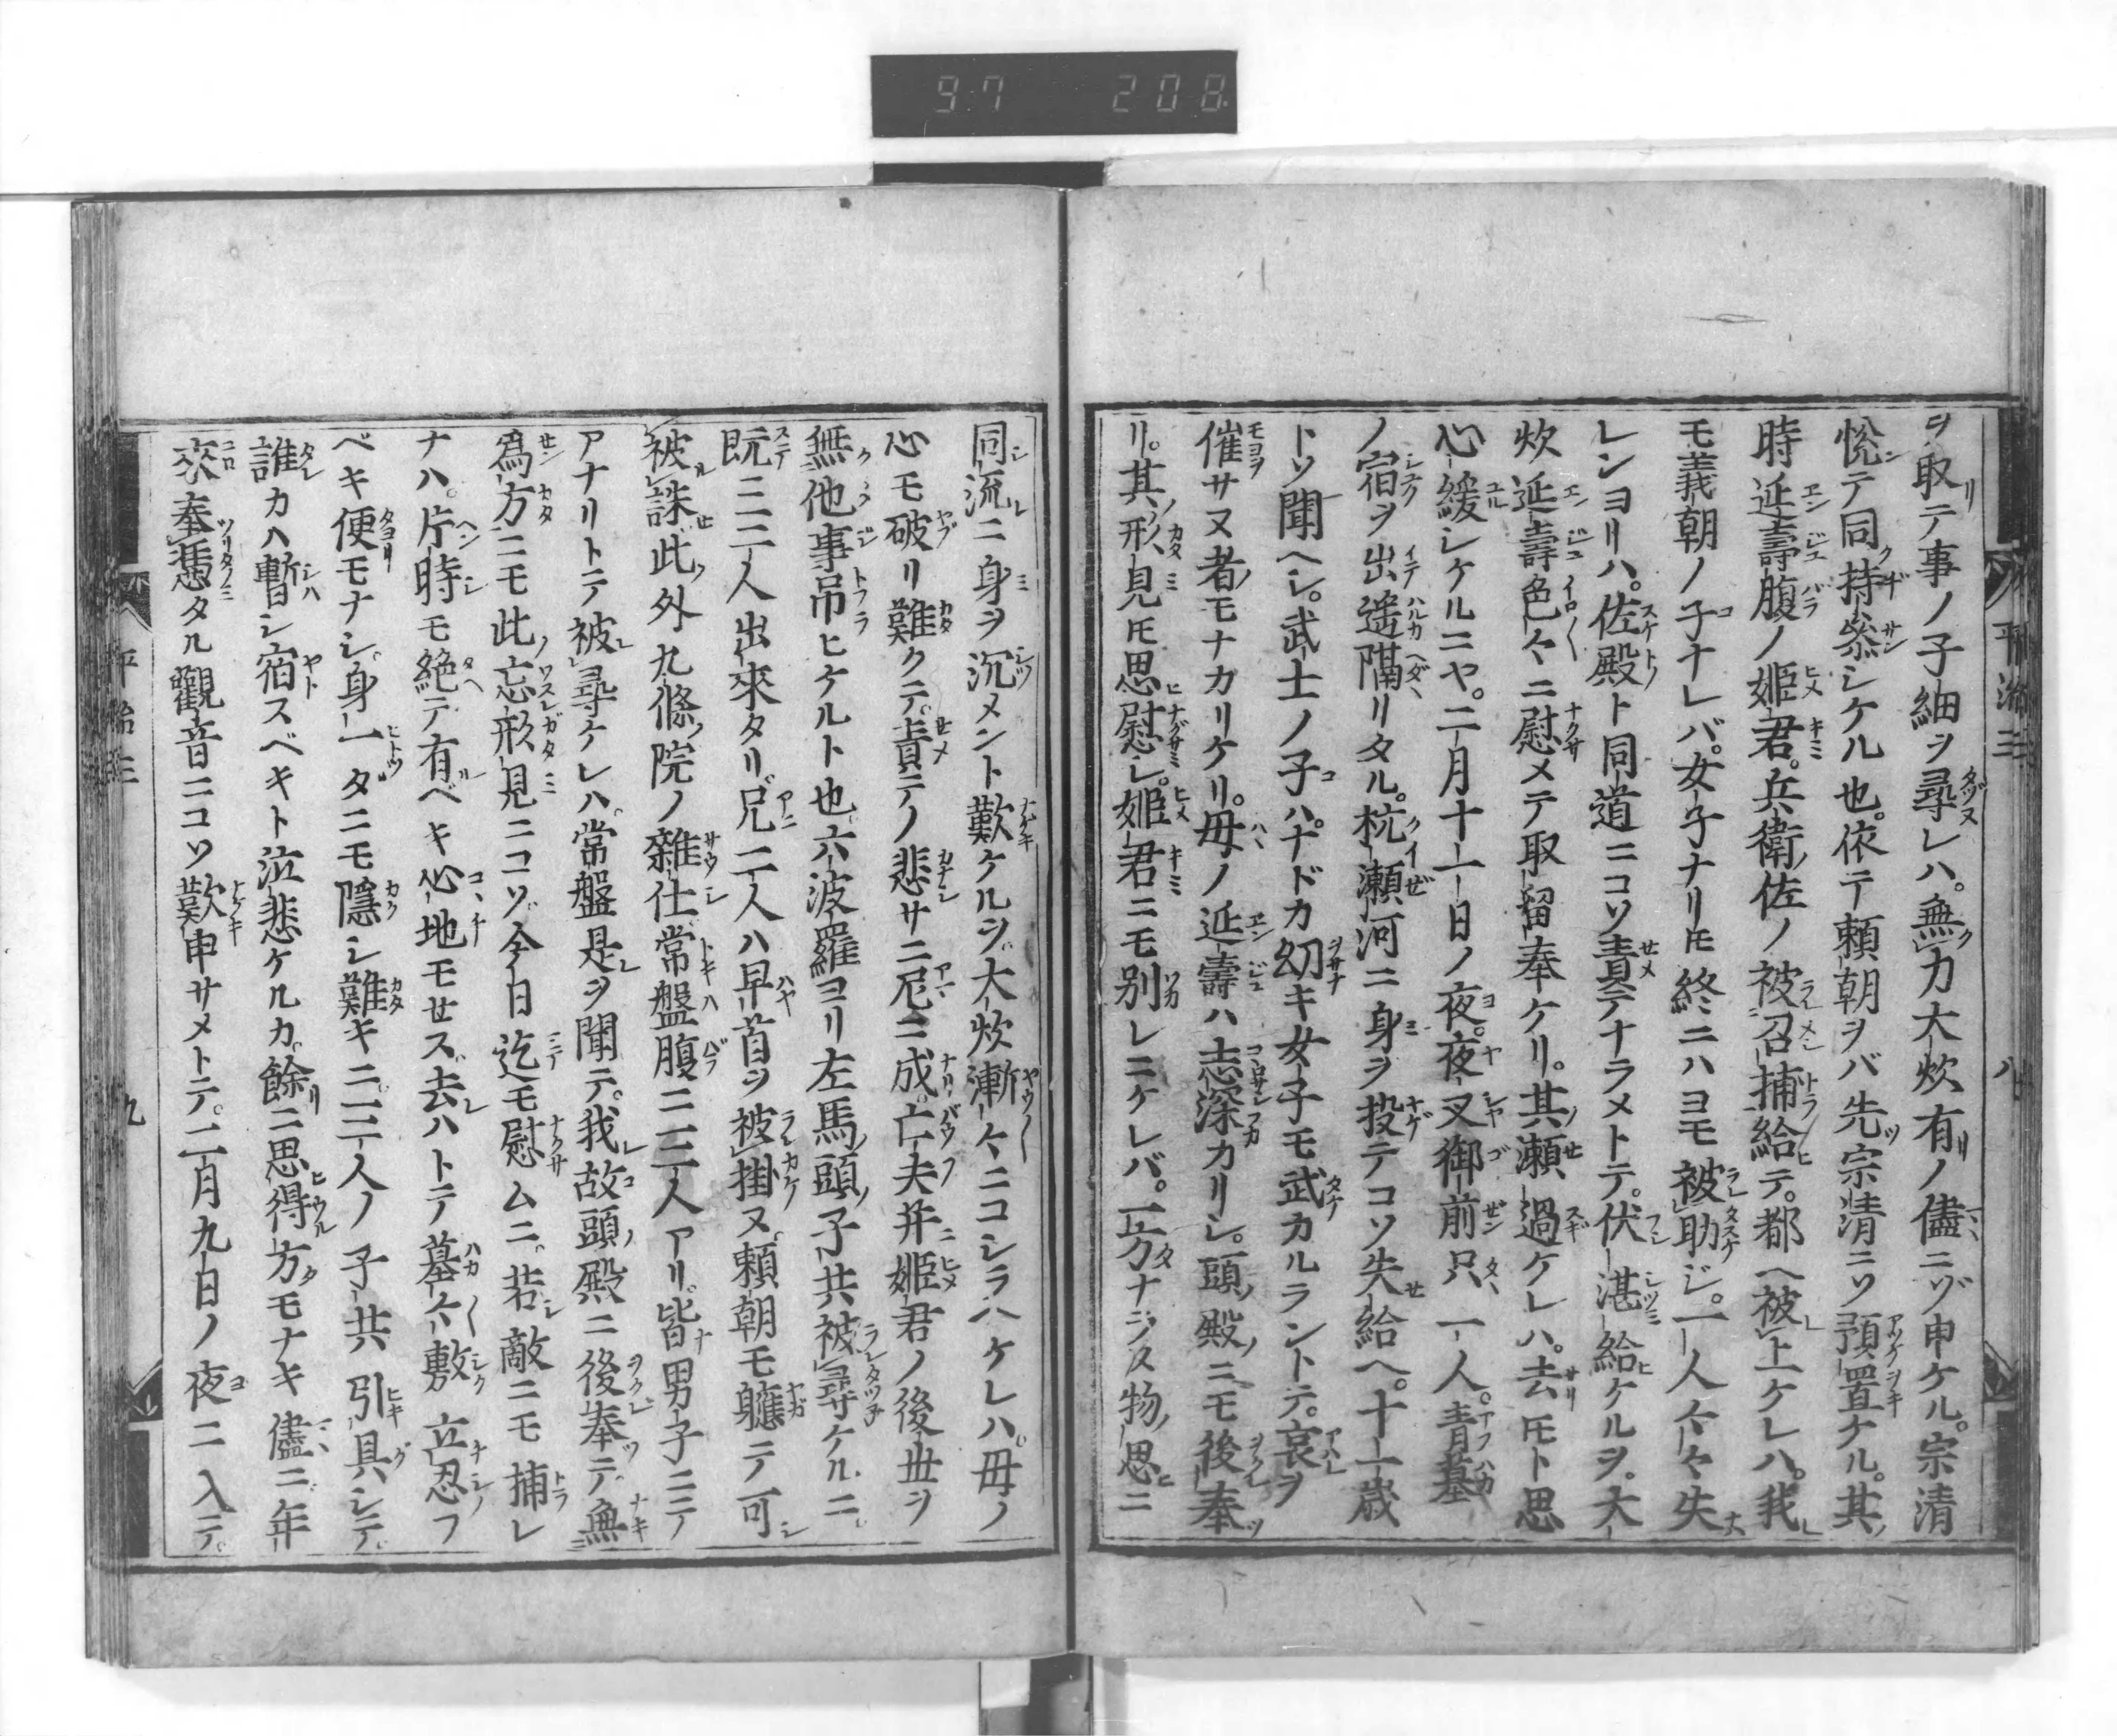 97 208
ヲ取テ事ノ子細ヲ尋レハ。無力大炊有ノ儘ニゾ申ケル。宗清
悦テ同持参シケル也。依テ頼朝ヲバ先宗清ニソ預置ケル。其
時延壽腹ノ姫君。兵衛佐ノ被召捕給テ。都ヘ被上ケレハ。我
モ義朝ノ子ナレバ。女子ナリ𪜈終ニハヨモ被助ジ。一人々々失
レンヨリハ。佐殿ト同道ニコソ責テナラメトテ。伏湛給ケルヲ。大
炊延壽色々ニ慰メテ取留奉ケリ。其瀬過ケレハ。去𪜈ト思
心緩シケルニヤ。二月十一日ノ夜。夜叉御前只一人。青墓
ノ宿ヲ出遥隔リタル。杭瀬河ニ身ヲ投テコソ失給ヘ。十一歳
トソ聞ヘシ。武士ノ子ハ。ナドカ幼キ女子モ武カルラントテ。哀ヲ
催サヌ者モナカリケリ。母ノ延壽ハ志深カリシ。頭殿ニモ後奉
リ。其形見𪜈思慰シ。姫君ニモ別レニケレバ。一方ナラヌ物思ニ
平治三 八
同流ニ身ヲ沉メント歎ケルヲ。大炊漸々ニコシラヘケレハ。母ノ
心モ破リ難クテ。責テノ悲サニ尼ニ成。亡夫并姫君ノ後世ヲ
無他事吊ヒケルト也。六波羅ヨリ左馬頭ノ子共被尋ケルニ。
既ニ三人出來タリ。兄二人ハ早首ヲ被掛ヌ。頼朝モ軈テ可
被誅。此外九條院ノ雜仕常盤腹ニ三人アリ。皆男子ニテ
アナリトテ被尋ケレハ。常盤是ヲ聞テ。我故頭殿ニ後奉テ。無
爲方ニモ此忘形見ニコソ。今日迄モ慰ムニ。若敵ニモ捕レ
ナハ。片時モ絶テ有ベキ心地モせス。去ハトテ墓々敷立忍フ
ベキ便モナシ。身一ダニモ隱シ難キニ。三人ノ子共引具シテ。
誰カハ暫シ宿スベキト泣悲ケルカ。餘ニ思得方モナキ儘ニ。年
來奉憑タル觀音ニコソ歎申サメトテ。二月九日ノ夜ニ入テ。
平治三 九